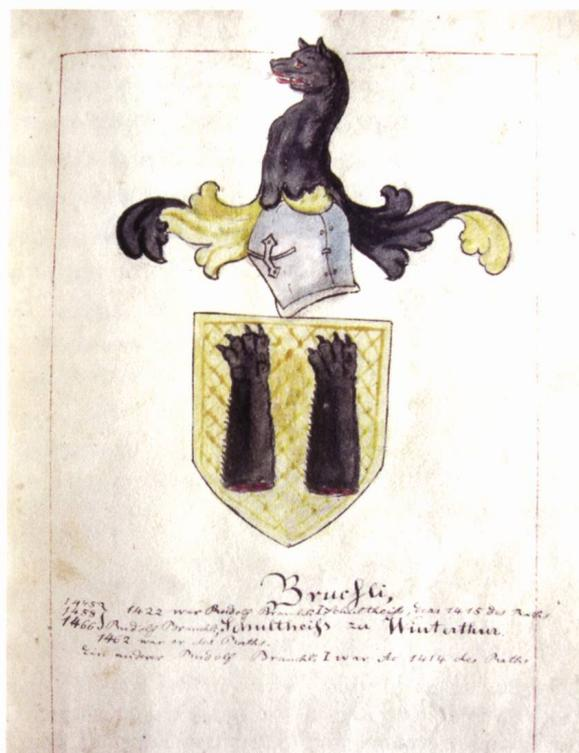 Bruchli,
1445
1458 1422 war Rudolf Brauchli, I Schultheiß, 1415 des Raths
1466 Rudolf Brauchli, Schultheiß zu Winterthur.
1462 war er des Raths.
Ein anderer Rudolf Brauchli, I war Ao 1414 des Raths